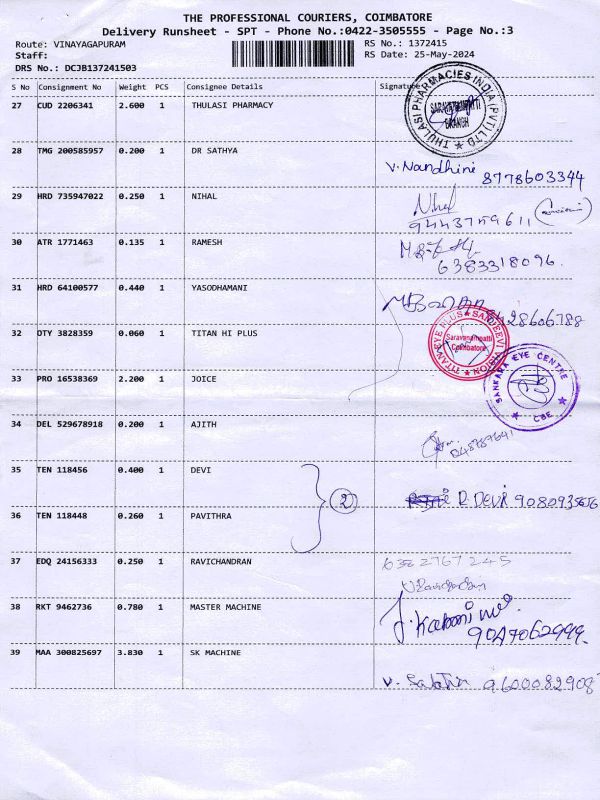 THE PROFESSIONAL COURIERS, COIMBATORE
Delivery Runsheet - SPT - Phone No.:0422-3505555 - Page No.:3
Route: VINAYAGAPURAM RS No.: 1372415
Staff: RS Date: 25-May-2024
DRS No.: DCJB137241503
S No Consignment No Weight PCS Consignee Details Signature
27 CUD 2206341 2.600 1 THULASI PHARMACY
THULASI PHARMACIES INDIA (PVT) LTD
BRANCH
28 TMG 200585957 0.200 1 DR SATHYA
V. Nandhini 8778603344
29 HRD 735947022 0.250 1 NIHAL
Nihal
9443759611
30 ATR 1771463 0.135 1 RAMESH
6383318096.
31 HRD 64100577 0.440 1 YASODHAMANI
8428606788
32 OTY 3828359 0.060 1 TITAN HI PLUS
TITAN EYE PLUS SANJEEVI VISION
Saravanampatti
Coimbatore
33 PRO 16538369 2.200 1 JOICE
SANKARA EYE CENTRE
CBE
34 DEL 529678918 0.200 1 AJITH
35 TEN 118456 0.400 1 DEVI
2
D DEVI
36 TEN 118448 0.260 1 PAVITHRA
37 EDQ 24156333 0.250 1 RAVICHANDRAN
38 RKT 9462736 0.780 1 MASTER MACHINE
39 MAA 300825697 3.830 1 SK MACHINE
9600082908